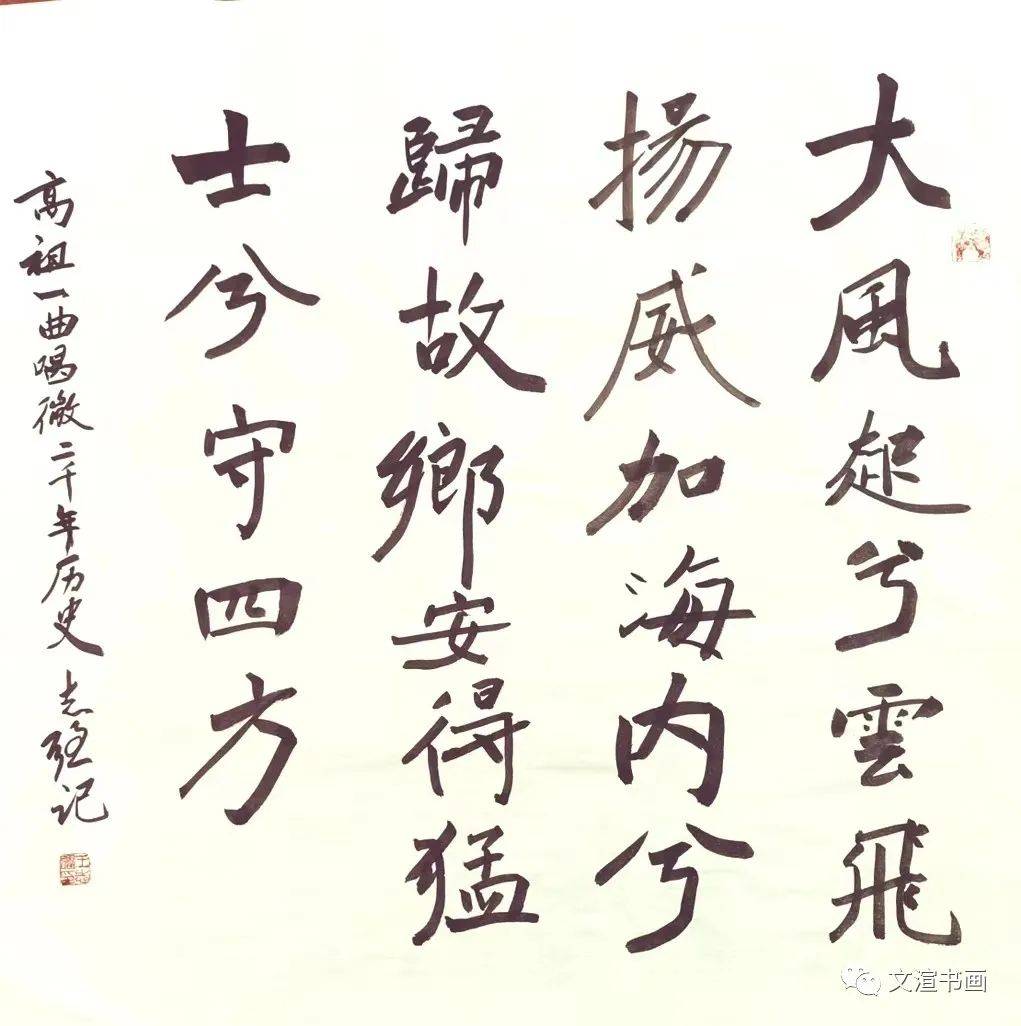 大風起兮雲飛
揚威加海内兮
歸故鄉安得猛
士兮守四方
高祖一曲唱徹二千年历史 志强记
文渲书画